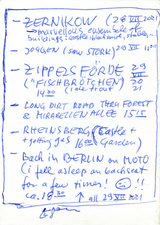 - ZERNIKOW (28 VII 2021)
marvellous ensemble of
buildings:
- JOGGEN (SAW STORK) 29 VII
- ZIPPELSFÖRDE 29
("FISCHBRÖTCHEN") VII
1430 (ate trout) 21
- LONG DIRT ROAD THEN FOREST
& MIRABELLEN ALLEE 1515
- RHEINSBERG (Castle +
+ getting gas 1600 Garden)
- Back in BERLIN ON MOTO
(i fell asleep on backseat
for a few times! ☺ !!
ca. 1830 ↑ all 29 VII 2021